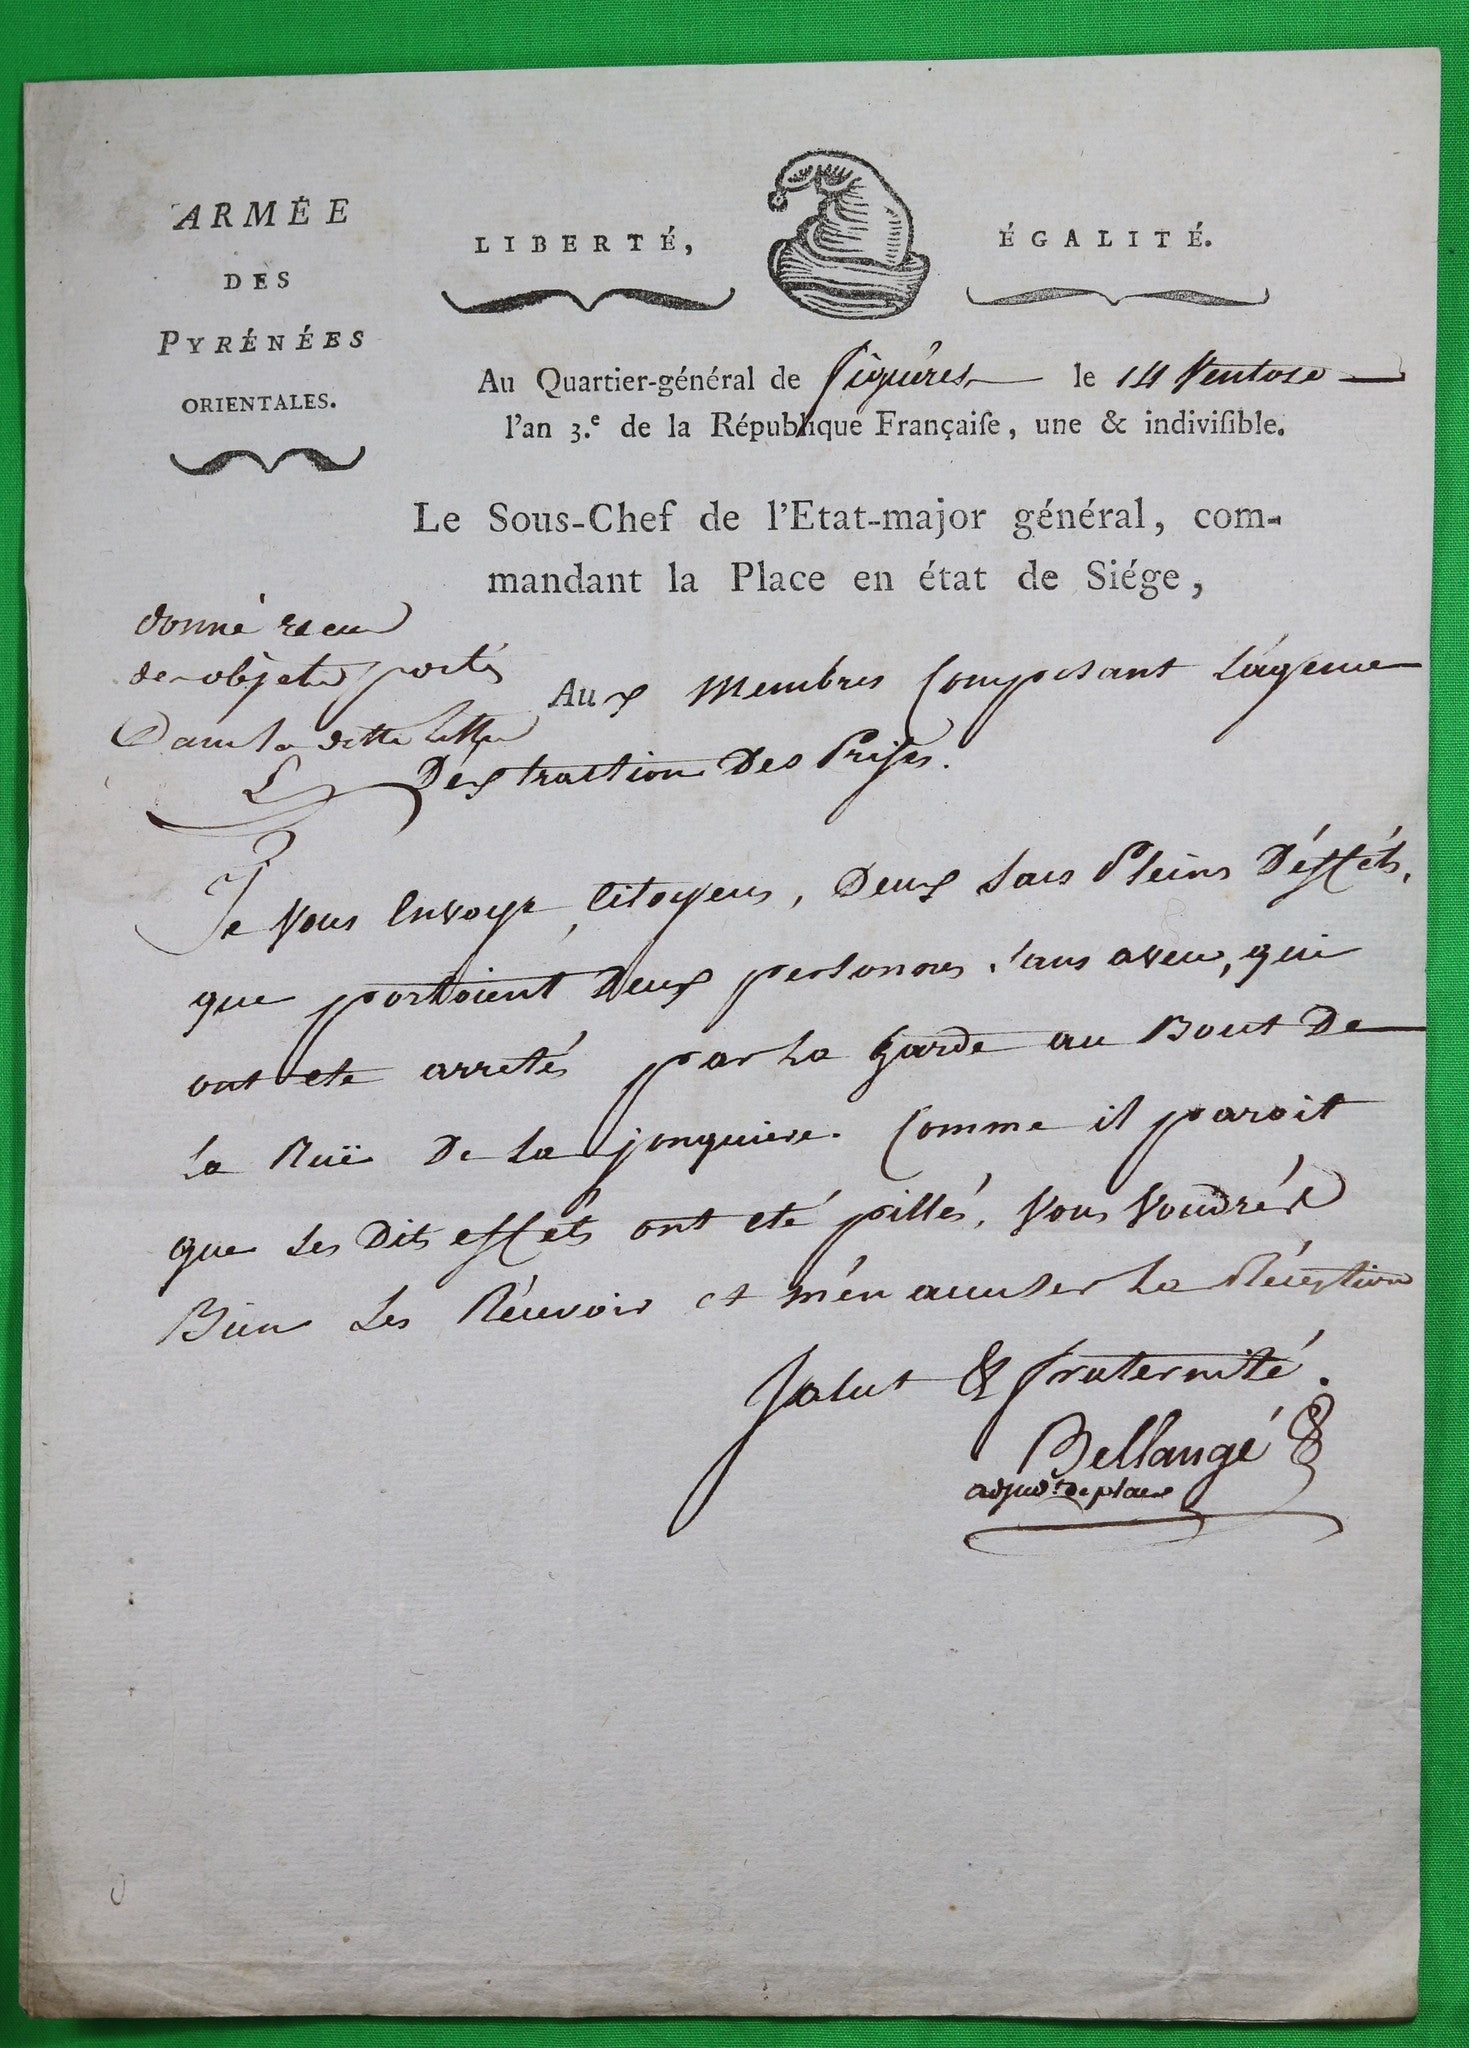 ARMÉE
DES
PYRÉNÉES
ORIENTALES.
LIBERTÉ, ÉGALITÉ.
Au Quartier-général de figuéres le 14 Ventose
l'an 3.e de la République Françaiſe, une & indiviſible.
Le Sous-Chef de l'Etat-major général, com-
mandant la Place en état de Siége,
donné recu
des objets portés
Dans la ditte lettre
Aux Membres Composant L'agence
D'éxtraction Des Prises.
Je Vous Envoye, Citoyens, Deux Sacs Pleins D'éffets,
que portoient Deux personnes sans aveu, qui
ont ete arretés par La garde au Bout De
La Ruë De La jonquiere. Comme il paroit
que Les Dits effets ont eté pillés, Vous Voudrés
Bien Les Récevoir et m'én accuser La Réception
Salut & fraternité.
Bellangé
adjud.t de place